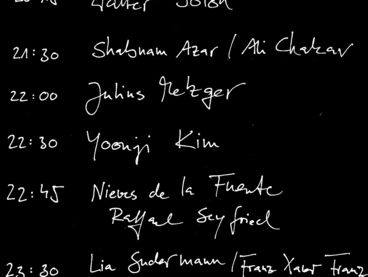 21:30 Shabnam Azar / Ali Chakav
22:00 Julius Metzger
22:30 Yoonji Kim
22:45 Nieves de la Fuente
Raffael Seyfried
23:30 Lia Sudermann / Franz Xaver Franz